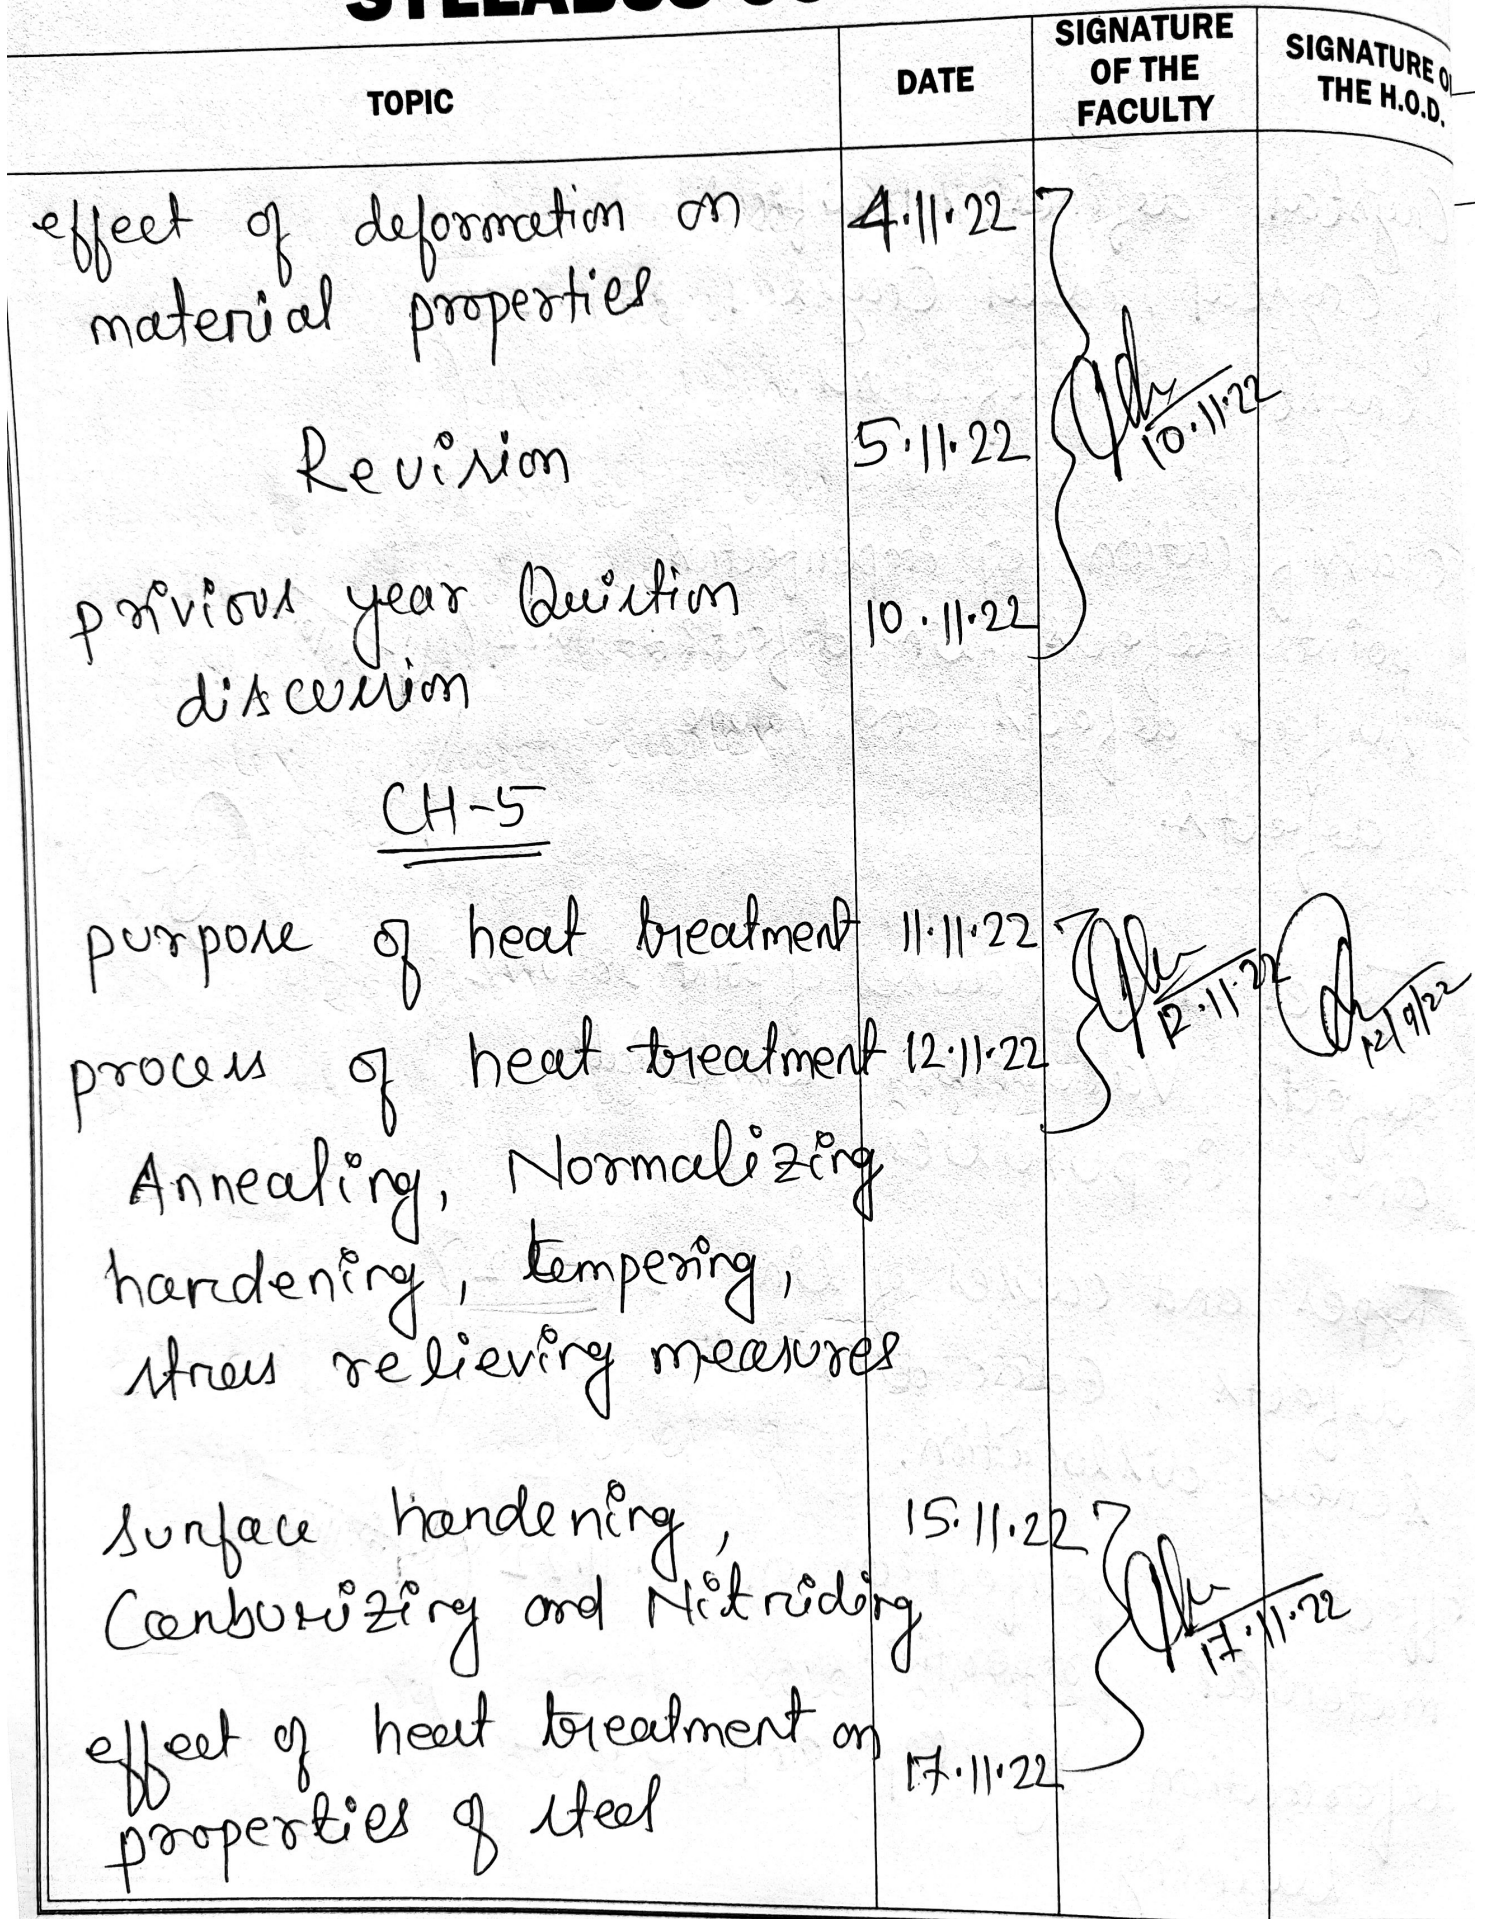 TOPIC
DATE
SIGNATURE
OF THE
FACULTY
SIGNATURE
THE H.O.D.
effect of deformation on 4.11.22
material properties
10.11.22
Revision 5.11.22
privious year Quistion 10.11.22
discussion
CH-5
purpose of heat treatment 11.11.22
12.11.22
process of heat treatment 12.11.22
12/9/22
Annealing, Normalizing
hardening, tempering,
stress relieving measures
surface hardening, 15.11.22
Carburizing and Nitriding
17.11.22
effect of heat treatment on 17.11.22
properties of steel